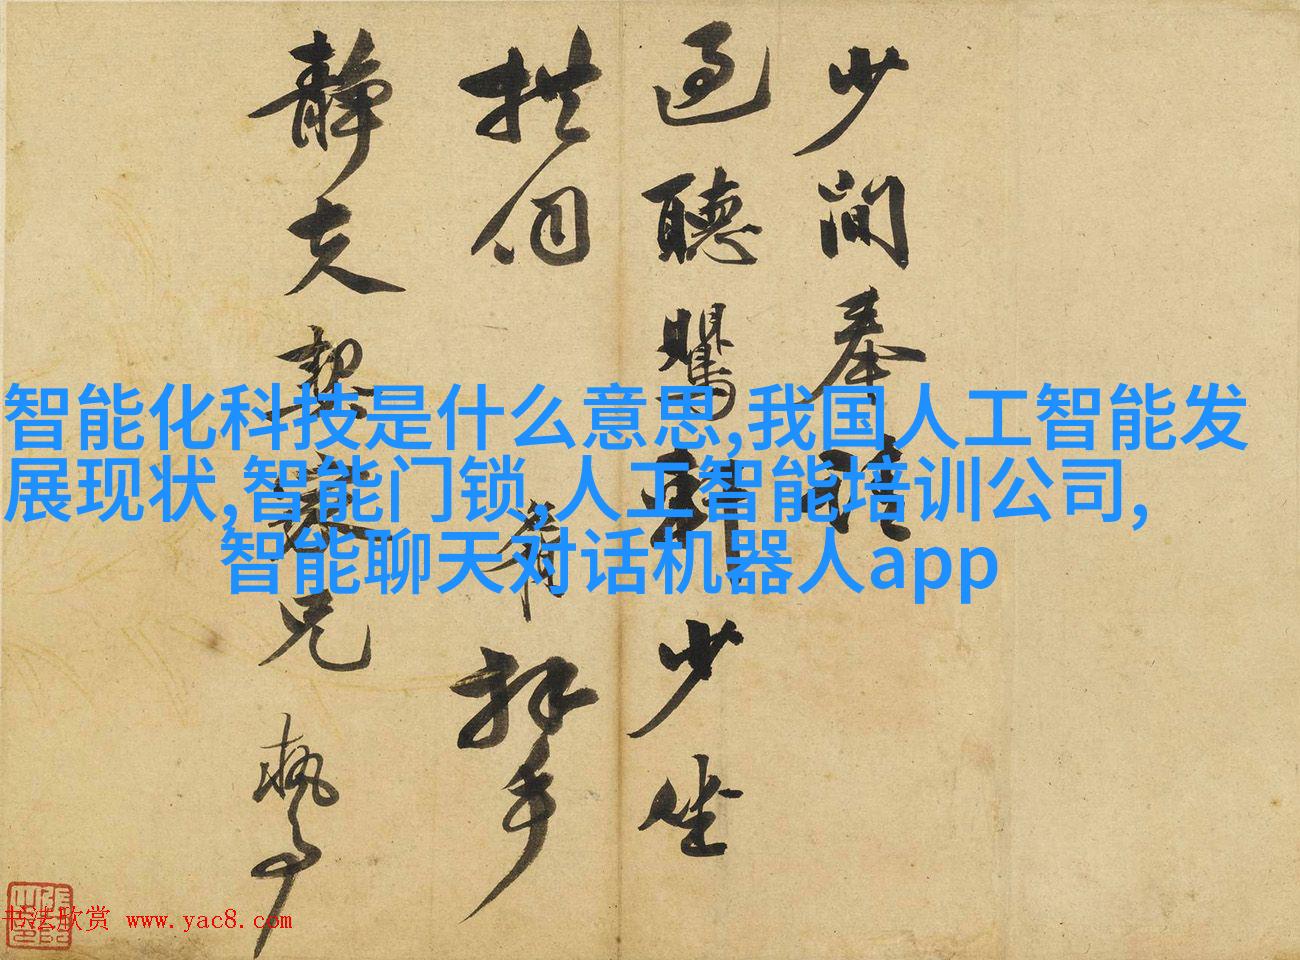 少間奉
過聽少坐
拱伺 拜手
静夫契家兄執事
智能化科技是什么意思,我国人工智能发
展现状,智能门锁,人工智能培训公司,
智能聊天对话机器人app
书法欣赏 www.yac8.com